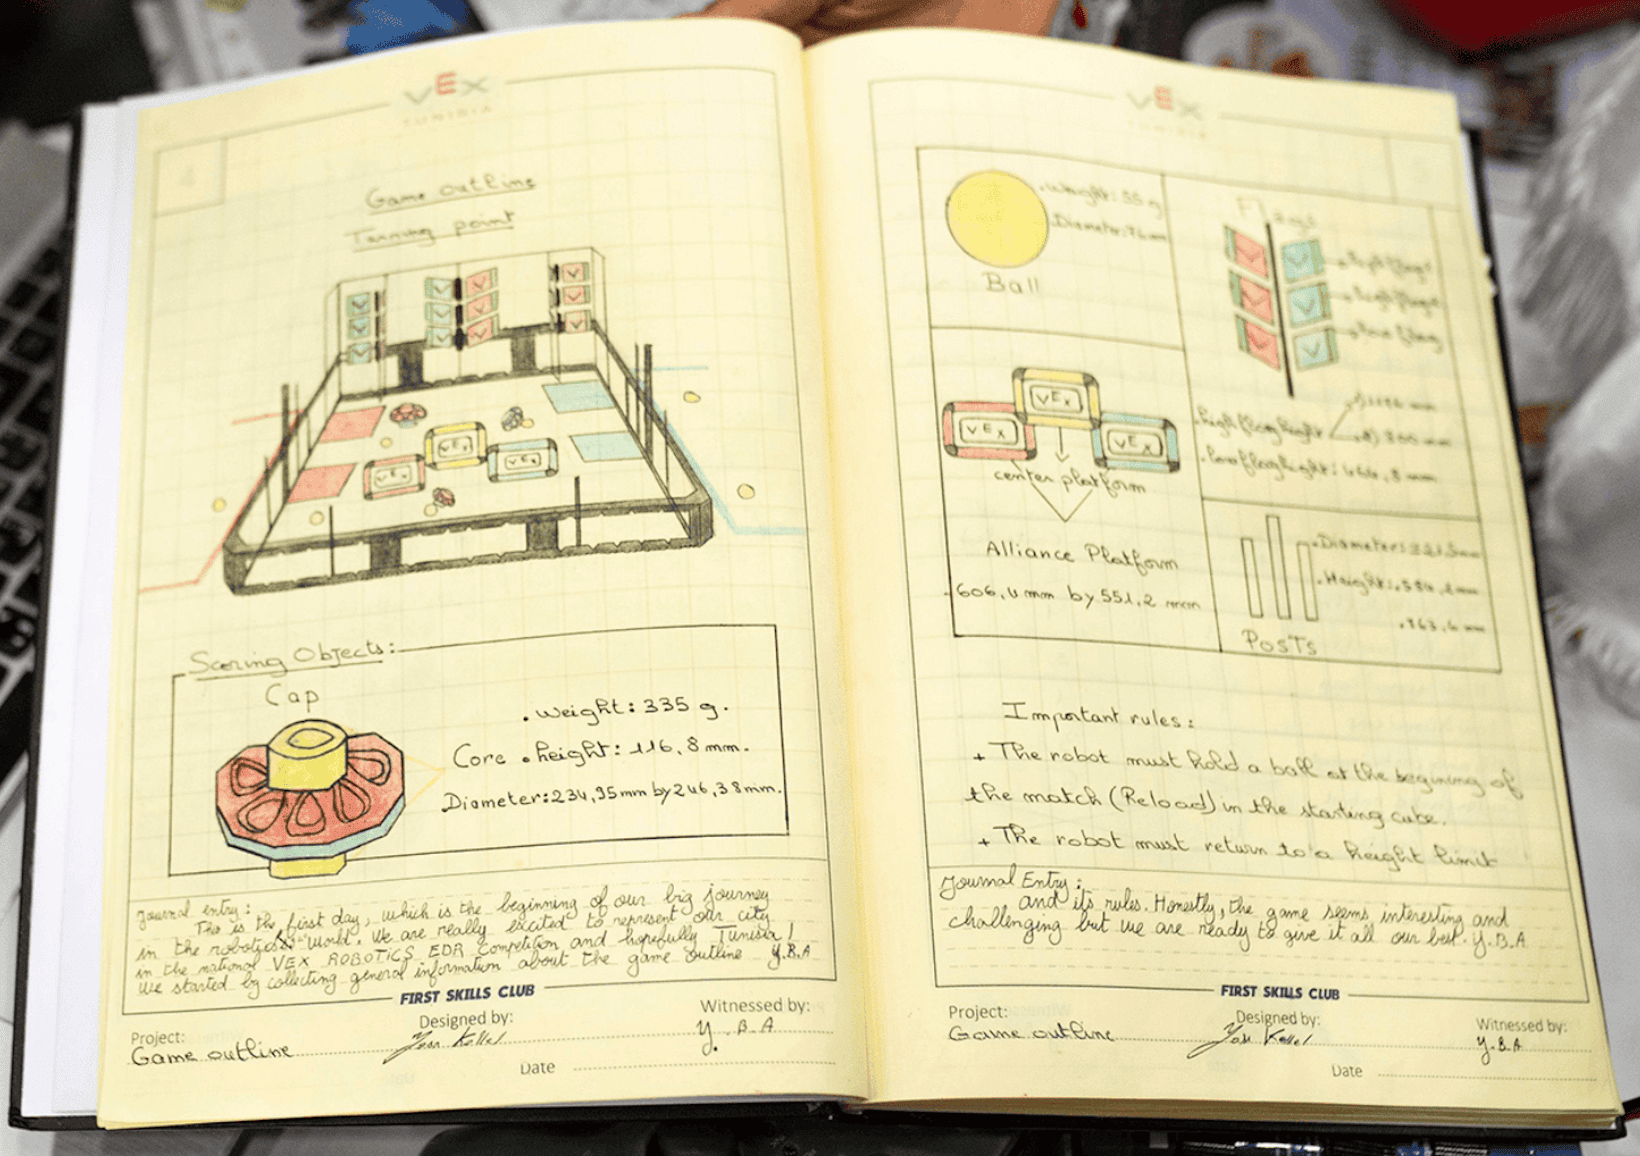 VEX
TUNISIA
4
Game outline
Turning point
VEX
VEX
VEX
Scoring Objects:
Cap
. weight: 335 g.
Core . height: 116,8 mm.
Diameter: 234,95mm by 246,38mm.
Journal entry:
This is the first day, which is the beginning of our big journey
in the robotics world. We are really excited to represent our city
in the national VEX ROBOTICS EDR Competition and hopefully Tunisia!
We started by collecting general information about the game outline Y.B.A
FIRST SKILLS CLUB
Project:
Game outline
Designed by:
Witnessed by:
Y. B. A
Date
VEX
TUNISIA
. Weight: 55 g
. Diameter: 76 mm
Ball
Flags
. high flag height
. low flag height:
VEX
VEX
VEX
center platform
Alliance Platform
. 606,4 mm by 551,2 mm
. Diameter:
. Height: . 584,2 mm
Posts
Important rules:
+ The robot must hold a ball at the begining of
the match (Reload) in the starting cube.
+ The robot must return to a height limit
Journal Entry:
and its rules. Honestly, the game seems interesting and
challenging but we are ready to give it all our best. Y.B.A
FIRST SKILLS CLUB
Project:
Game outline
Designed by:
Witnessed by:
Y.B.A
Date